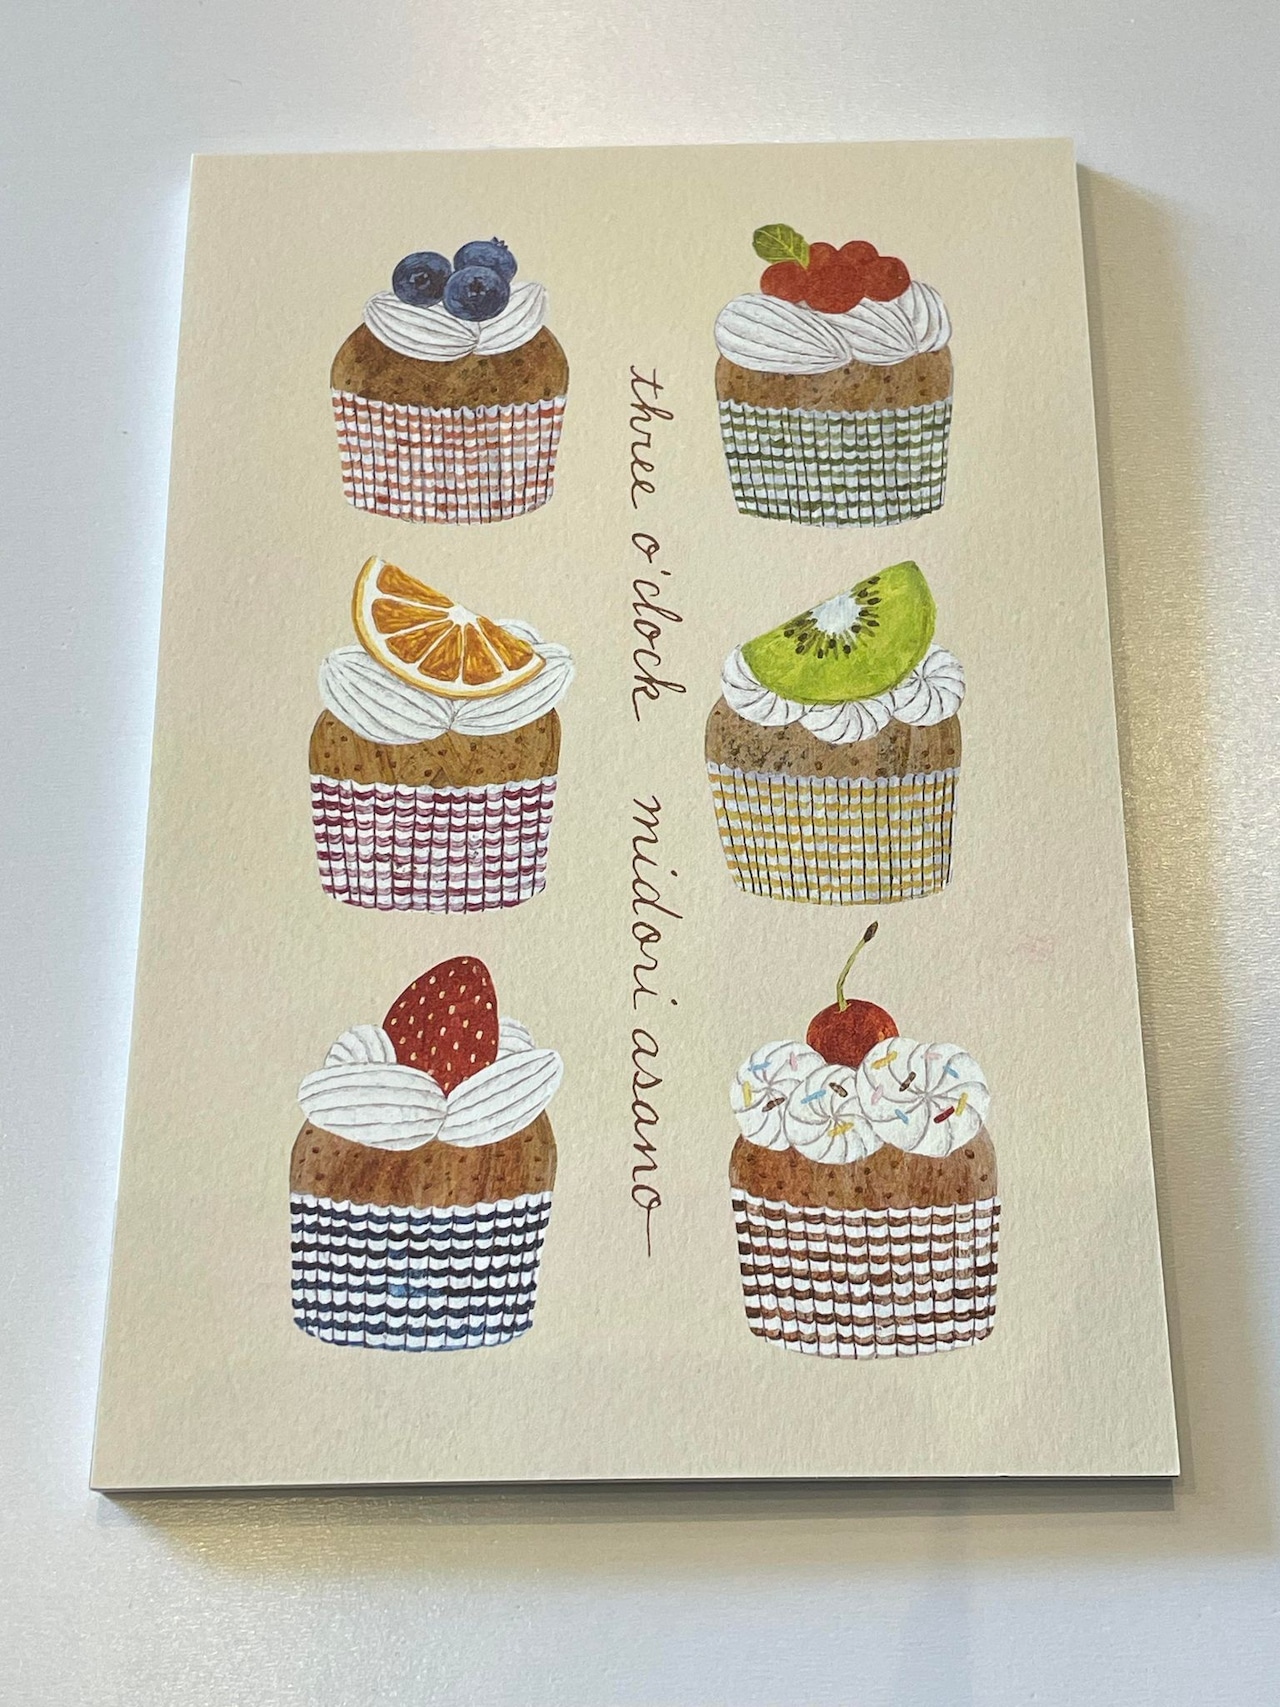 three o'clock midori asano